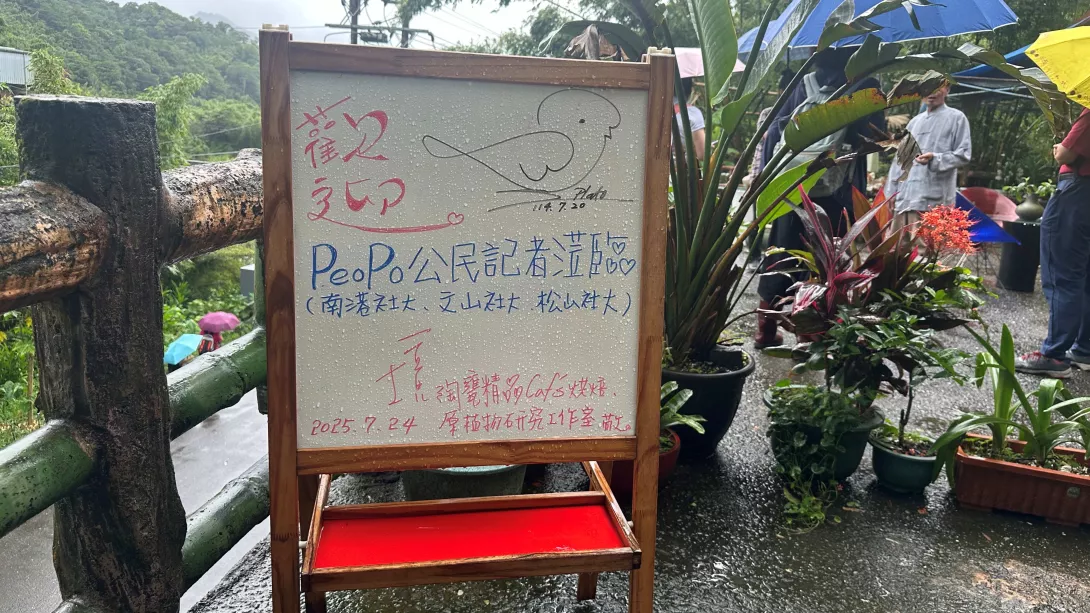 歡迎
Plato
114.7.20
PeoPo公民記者蒞臨
(南港社大、文山社大、松山社大)
陶甕精品Café烘焙、
2025.7.24 原植物研究工作室 敬邀